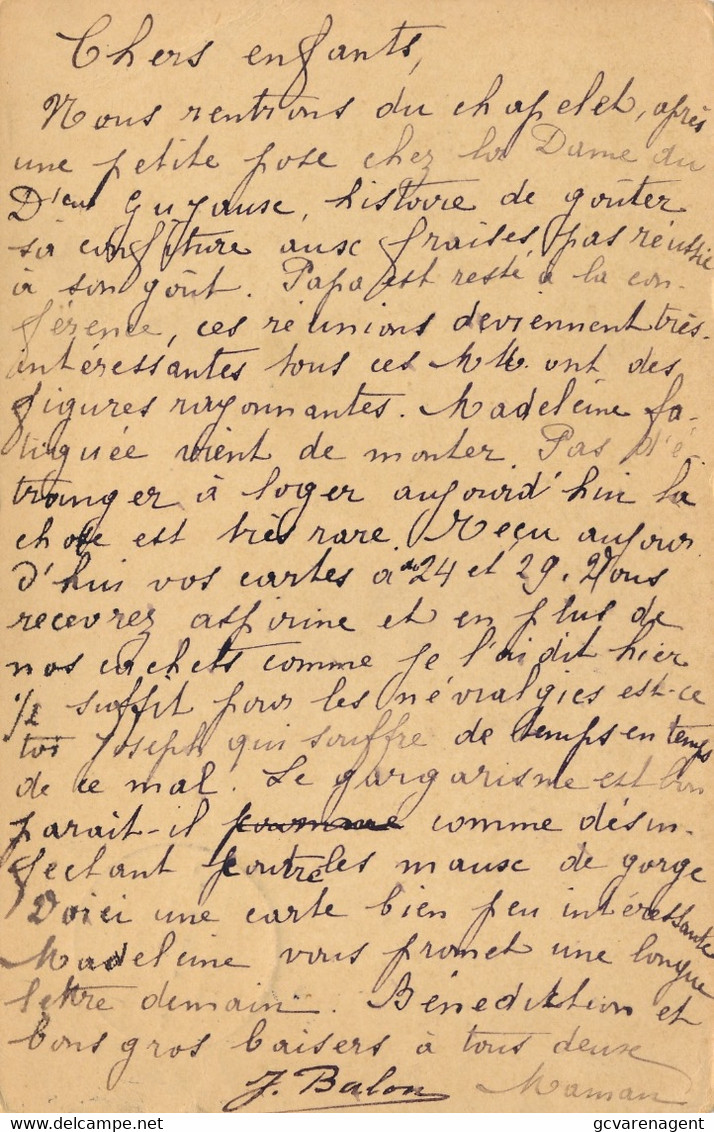 Chers enfants,
Nous rentrons du chapelet, après
une petite pose chez la Dame du
D'eur Guyause, histoire de goûter
sa confiture aux fraises, pas réussie
à son goût. Papa est resté à la con-
férence, ces réunions deviennent très-
intéressantes tous ces MM. ont des
figures rayonnantes. Madeleine fa-
tiguée vient de monter. Pas d'é-
tranger à loger aujourd'hui la
chose est très rare. Reçu aujour
d'hui vos cartes du 24 et 29. Vous
recevrez aspirine et en plus de
nos cachets comme je l'ai dit hier
1/2 suffit pour les névralgies est-ce
toi Joseph qui souffre de temps en temps
de ce mal. Le gargarisme est bon
parait-il comme désin-
fectant contre les maux de gorge
Voici une carte bien peu intéressante
Madeleine vous promet une longue
lettre demain. Bénédiktion et
bons gros baisers à tous deux
J. Balon Maman
gcvarenagent